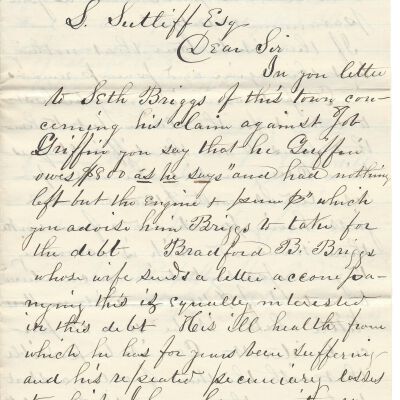 S. Sutliff Esq
Dear Sir
In you letter
to Seth Briggs of this town con-
cerning his claim against Job
Griffin you say that he Griffin
owes $800 as he says" and had nothing
left but the Engine + which
you advise him Briggs to take for
the debt Bradford B. Briggs
whose wife sends a letter accompa-
nying this is equally interested
in this debt His ill health from
which he has for years been suffering
and his repeated pecuniary losses